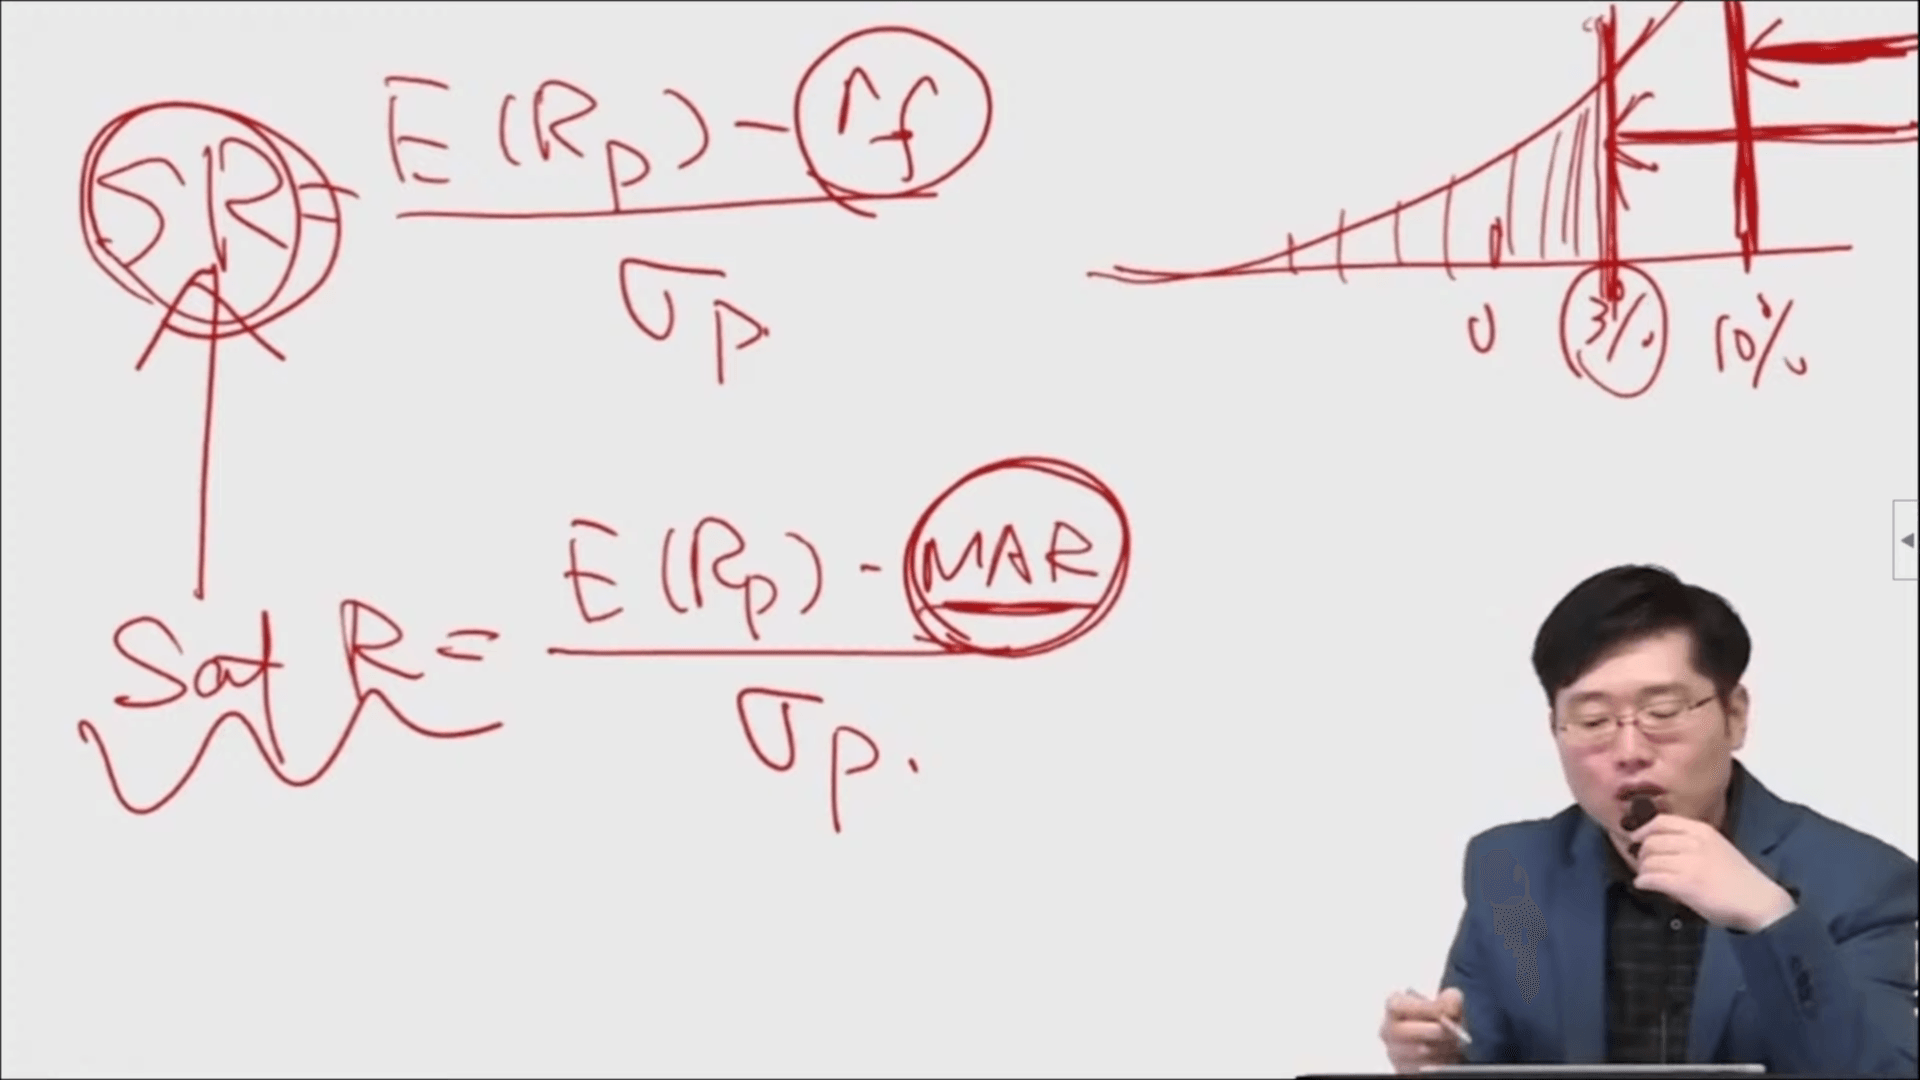 SR = E(Rp) - rf
σp.
0 3% 10%
Sat R = E(Rp) - MAR
σp.